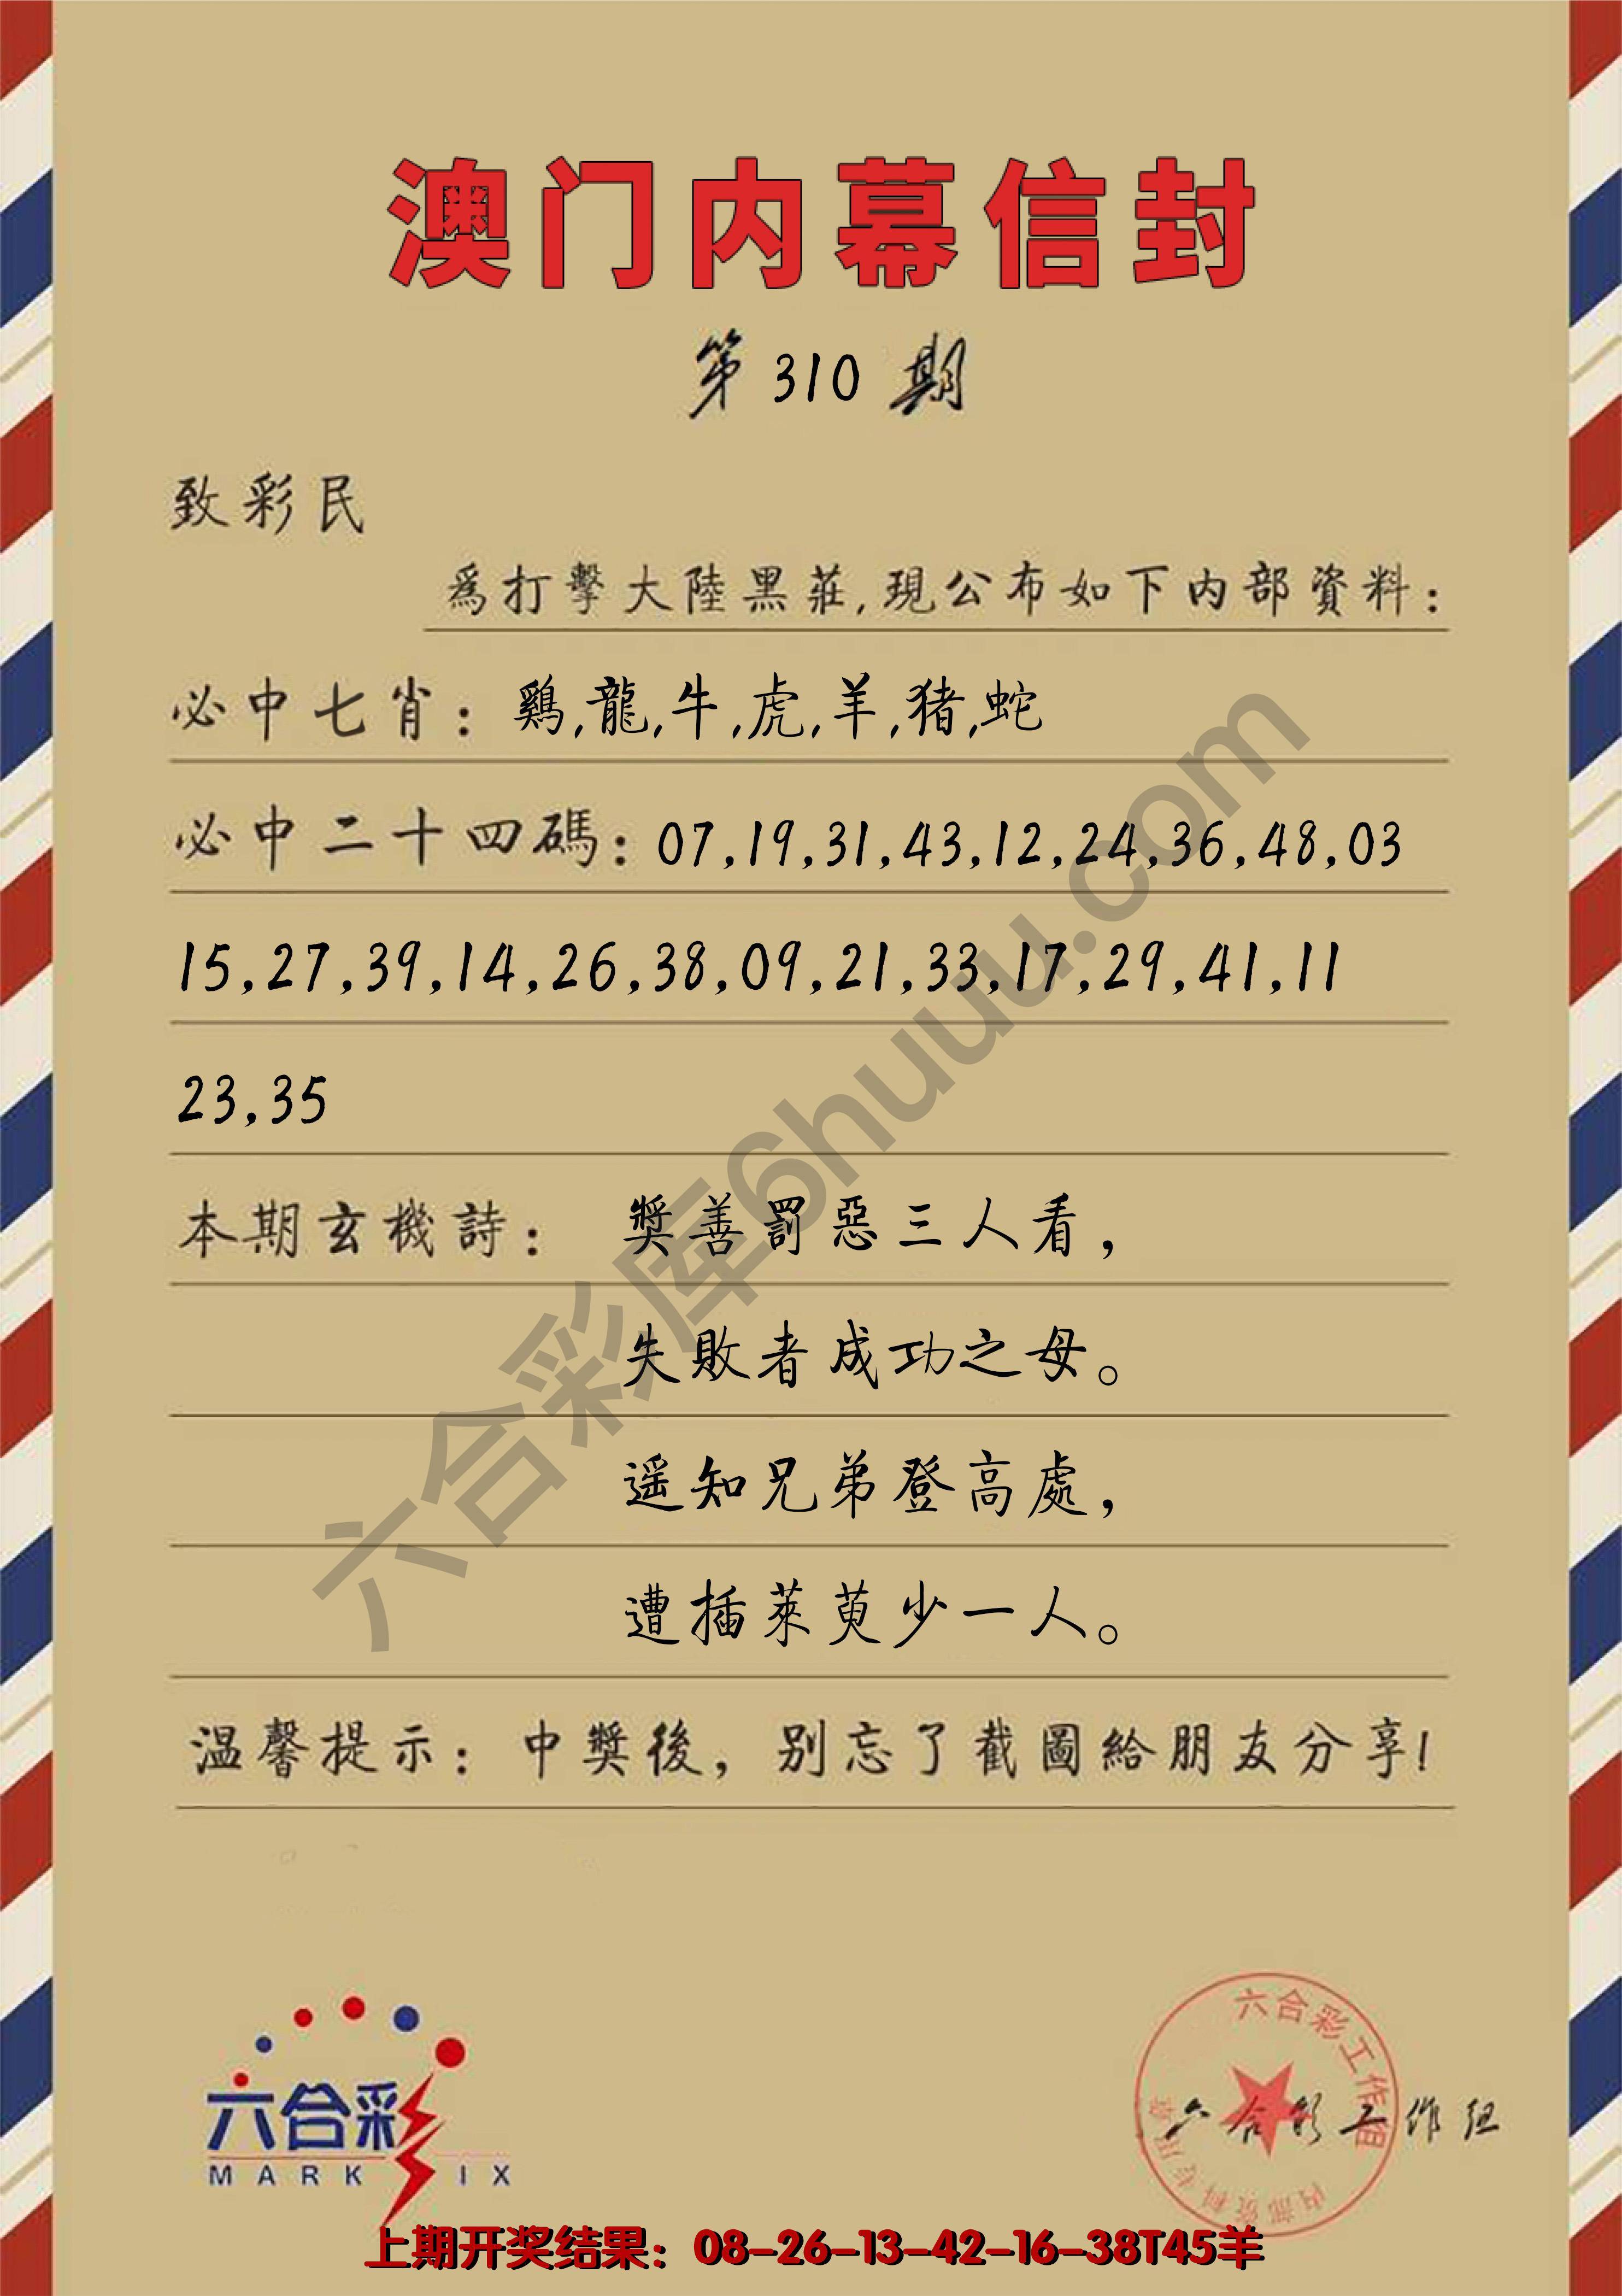 澳门内幕信封
第310期
致彩民
爲打擊大陸黑莊,現公布如下内部資料:
必中七肖: 鷄,龍,牛,虎,羊,猪,蛇
必中二十四碼: 07,19,31,43,12,24,36,48,03
15,27,39,14,26,38,09,21,33,17,29,41,11
23,35
本期玄機詩: 獎善罰惡三人看，
失敗者成功之母。
遥知兄弟登高處，
遭插萊萸少一人。
温馨提示: 中獎後，别忘了截圖給朋友分享!
六合彩库6huuu.com
六合彩
MARK IX
六合彩工作组
内部资料专用章
六合彩工作组
上期开奖结果：08-26-13-42-16-38T45羊